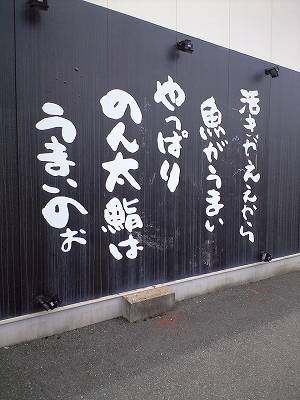 活きがええから
魚がうまい
やっぱり
のん太鮨は
うまいのぉ